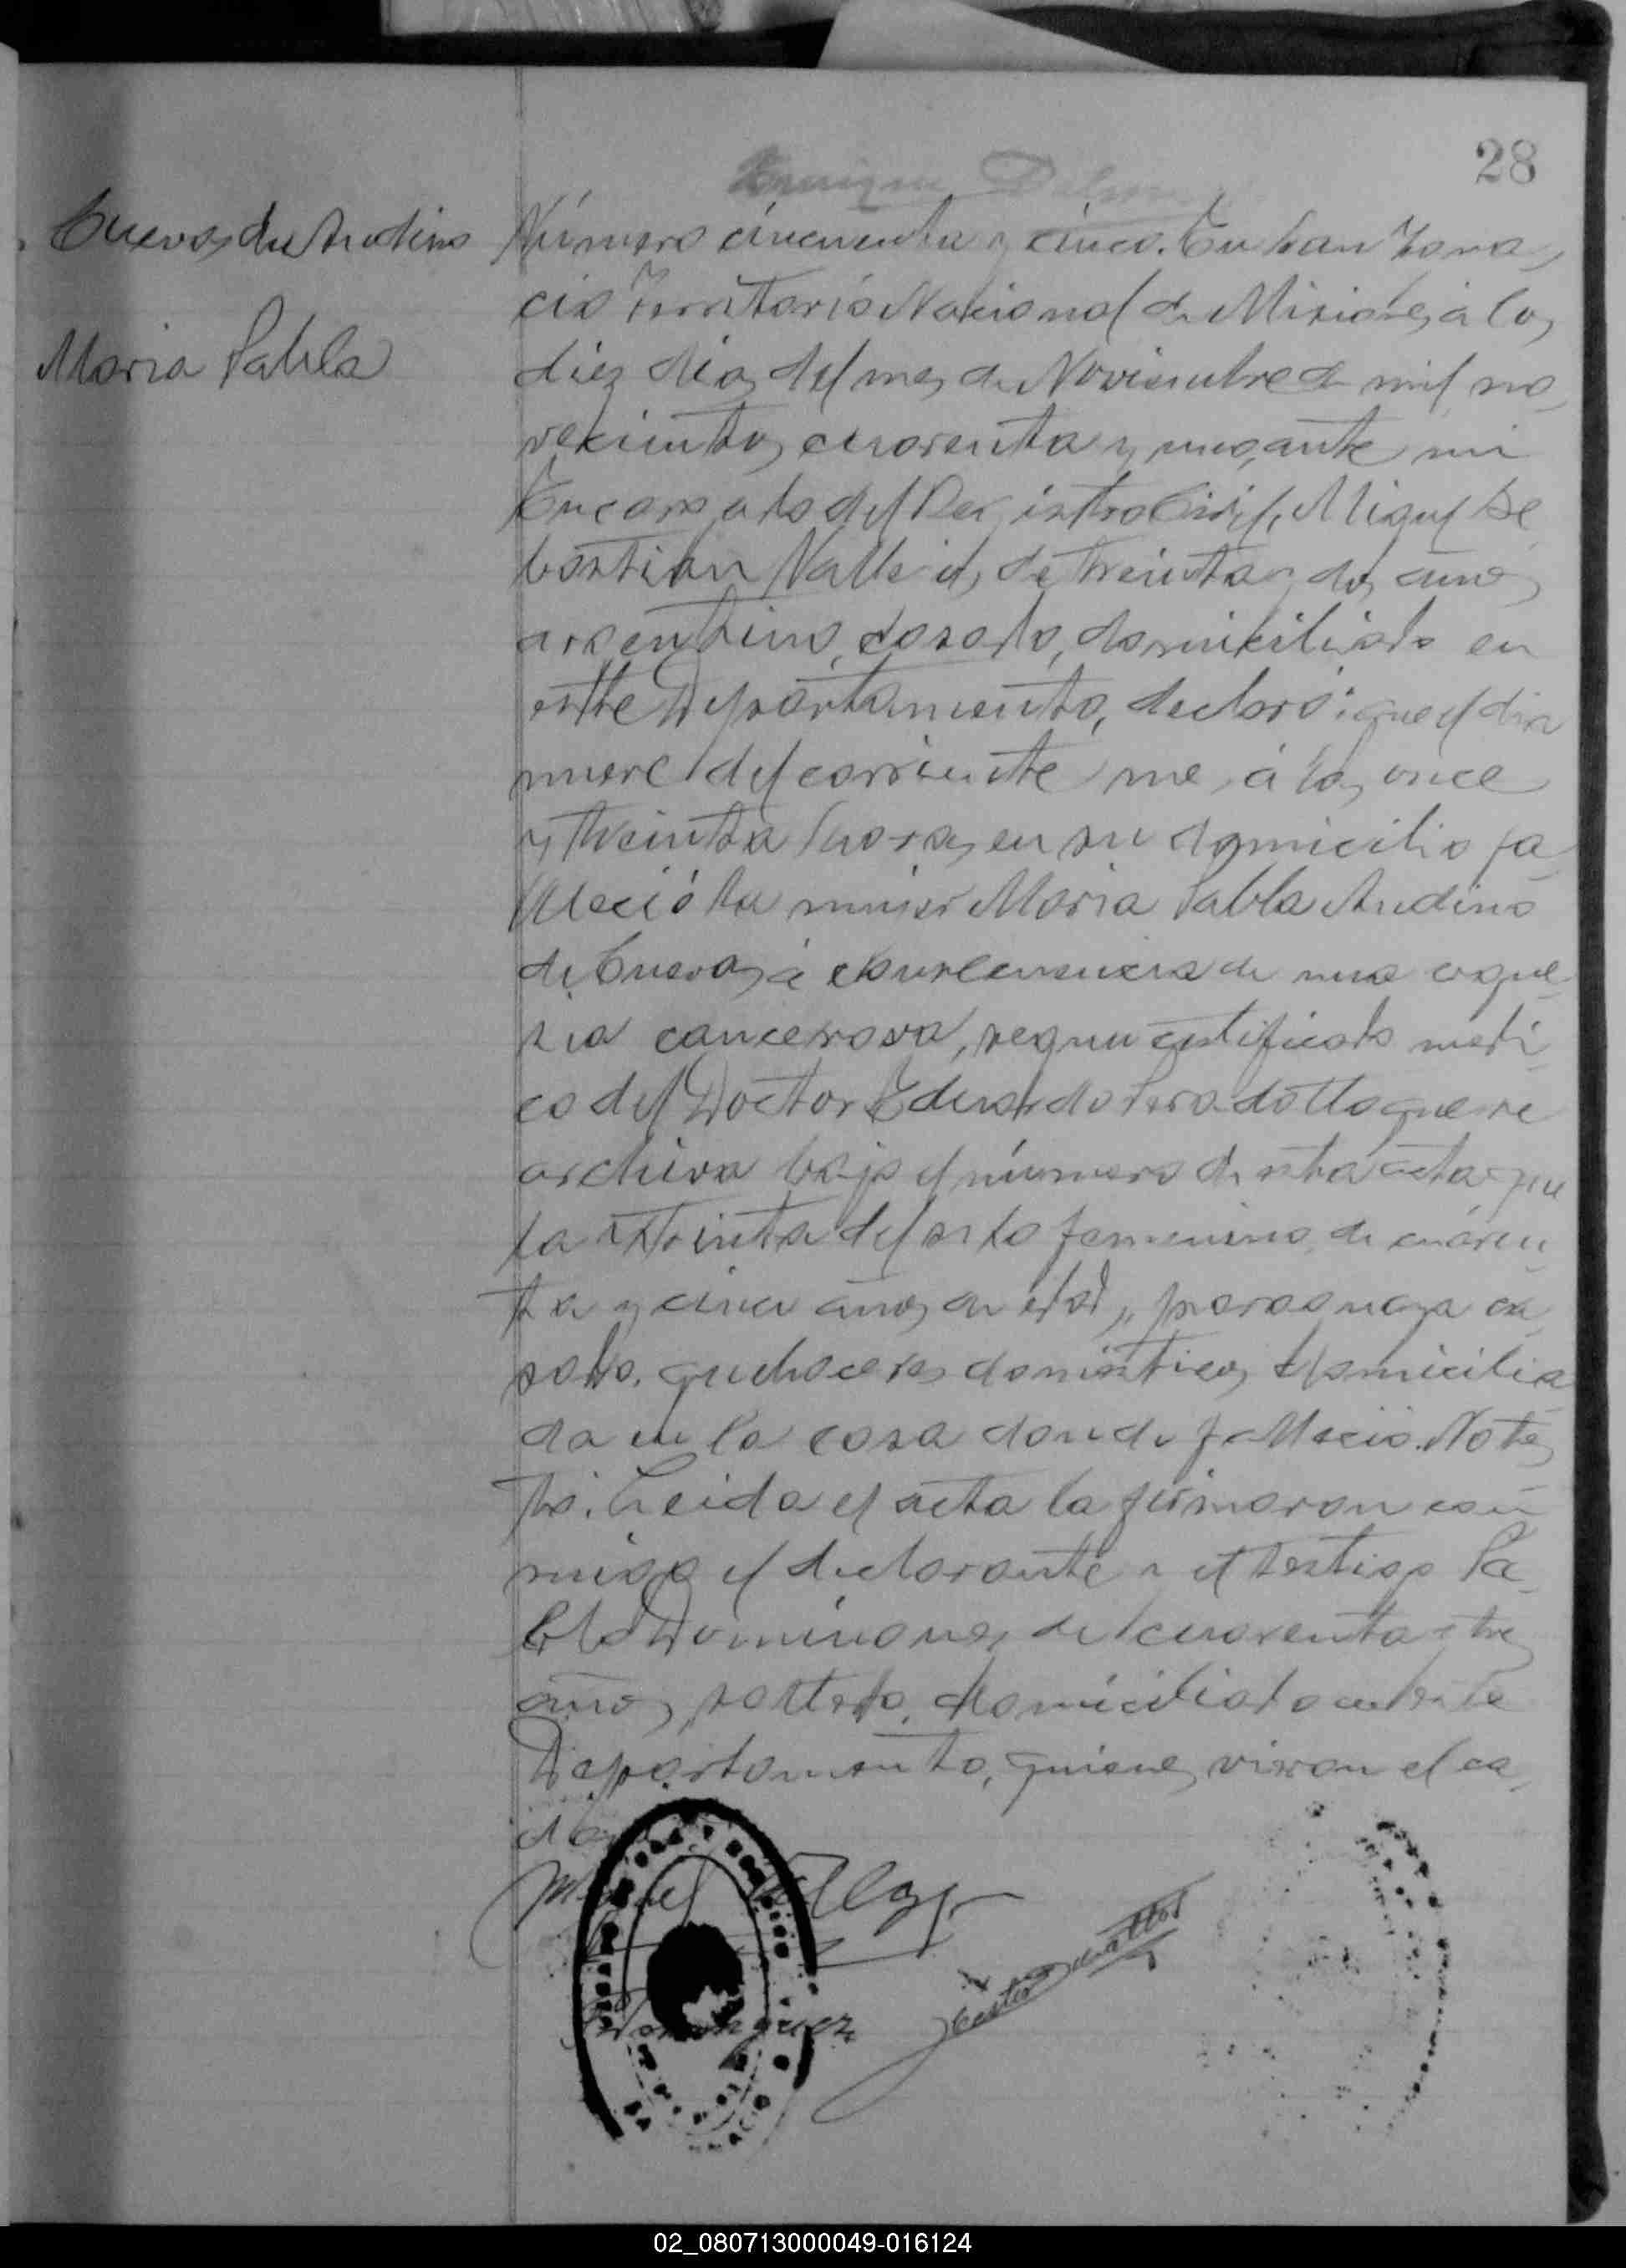 28
Cuevas, du Andino
María Pabla
Número cincuenta y cinco. En San Igna
cio Territorio Nacional de Misiones, a los
diez días del mes de Noviembre de mil no
vecientos cuarenta y uno, ante mi
Encargado del Registro Civil, Miguel Se
bastian Vallejos, de treinta y dos años
argentino, casado, domiciliado en
este Departamento, declaró: que el día
nueve del corriente mes, á las once
y treinta horas, en su domicilio fa
lleció la mujer María Pabla Andino
de Cuevas, á consecuencia de una
cancerosa, según certificado medi
co del Doctor Eduardo que se
archiva bajo el número de esta acta que
la del sexo femenino, de cuaren
ta y cinco años de edad, paraguaya ca
sada, quehaceres domésticos, domicilia
da en la casa donde falleció. No tes
tó. Leida el acta la firmaron con
migo el declarante y el testigo Pa
blo Domínguez, de cuarenta y tres
años, soltero, domiciliado en este
Departamento, quienes vieron el ca
dáver
Miguel
Domínguez
02_080713000049-016124